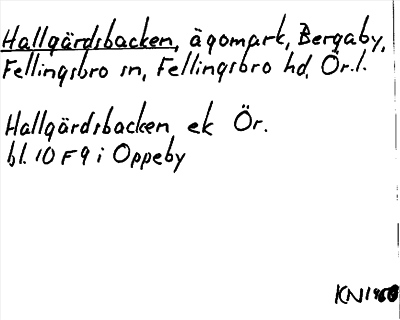 Hallgärdsbacken, ägomark, Bergaby,
Fellingsbro sn, Fellingsbro hd, Ör.l.
Hallgärdsbacken ek Ör.
bl. 10 F 9 i Oppeby